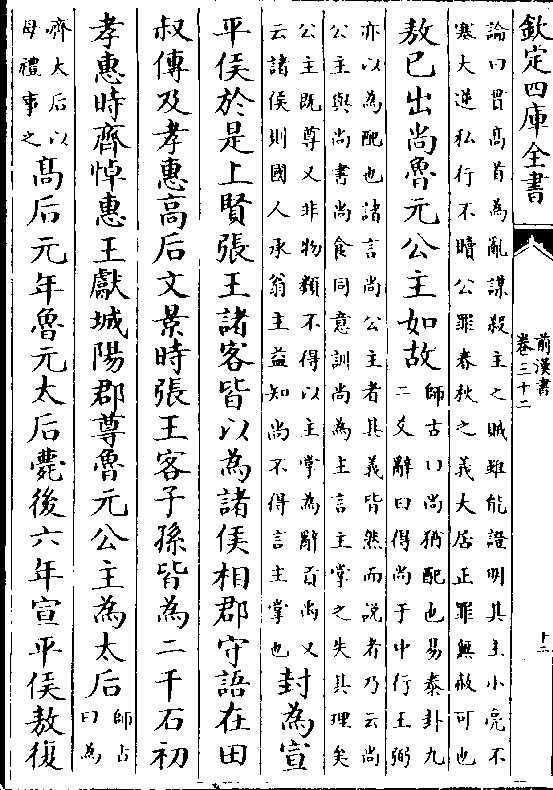 欽定四庫全書
前漢書
卷三十二
十二
論曰貫髙首為亂謀殺主之賊雖能證明其主小亮不
塞大逆私行不贖公罪春秋之義大居正罪無赦可也
敖已出尚魯元公主如故
師古曰尚猶配也易泰卦九
二爻辭曰得尚于中行王弼
亦以為配也諸言尚公主者其義皆然而說者乃云尚
公主與尚書尚食同意訓尚為主言主掌之失其理矣
公主既尊又非物類不得以主掌為辭貢禹又
云諸侯則國人承翁主益知尚不得言主掌也
封為宣
平侯於是上賢張王諸客皆以為諸侯相郡守語在田
叔傳及孝惠高后文景時張王客子孫皆為二千石初
孝惠時齊悼惠王獻城陽郡尊魯元公主為太后
師古
曰為
齊太后以
母禮事之
髙后元年魯元太后薨後六年宣平侯敖復